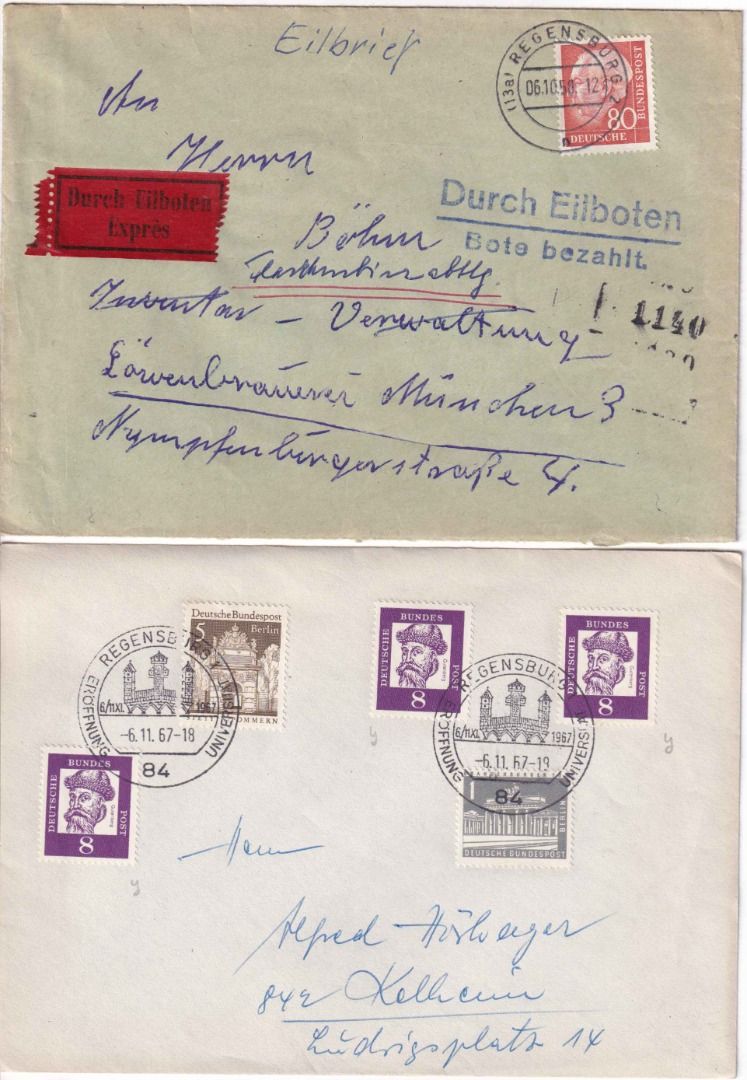 Eilbrief
(13a) REGENSBURG 2
06.10.58.-12
80
DEUTSCHE BUNDESPOST
An
Herrn
Durch Eilboten
Exprès
Durch Eilboten
Bote bezahlt.
Böhm
Inventar - Verwaltung
1140
Löwenbrauerei München 3
Nymphenburgerstraße 4.
Deutsche Bundespost
5 Berlin
STETTIN POMMERN
REGENSBURG 1
6/11.XI. 1967
-6.11.67-18
ERÖFFNUNG UNIVERSITÄT
84
DEUTSCHE BUNDES POST
Gutenberg
8
DEUTSCHE BUNDES POST
Gutenberg
8
REGENSBURG
6/11.XI. 1967
-6.11.67-19
ERÖFFNUNG UNIVERSITÄT
84
DEUTSCHE BUNDES POST
Gutenberg
8
1
BERLIN
DEUTSCHE BUNDESPOST
y
y
y
Herrn
Alfred
842 Kelheim
Ludwigsplatz 14